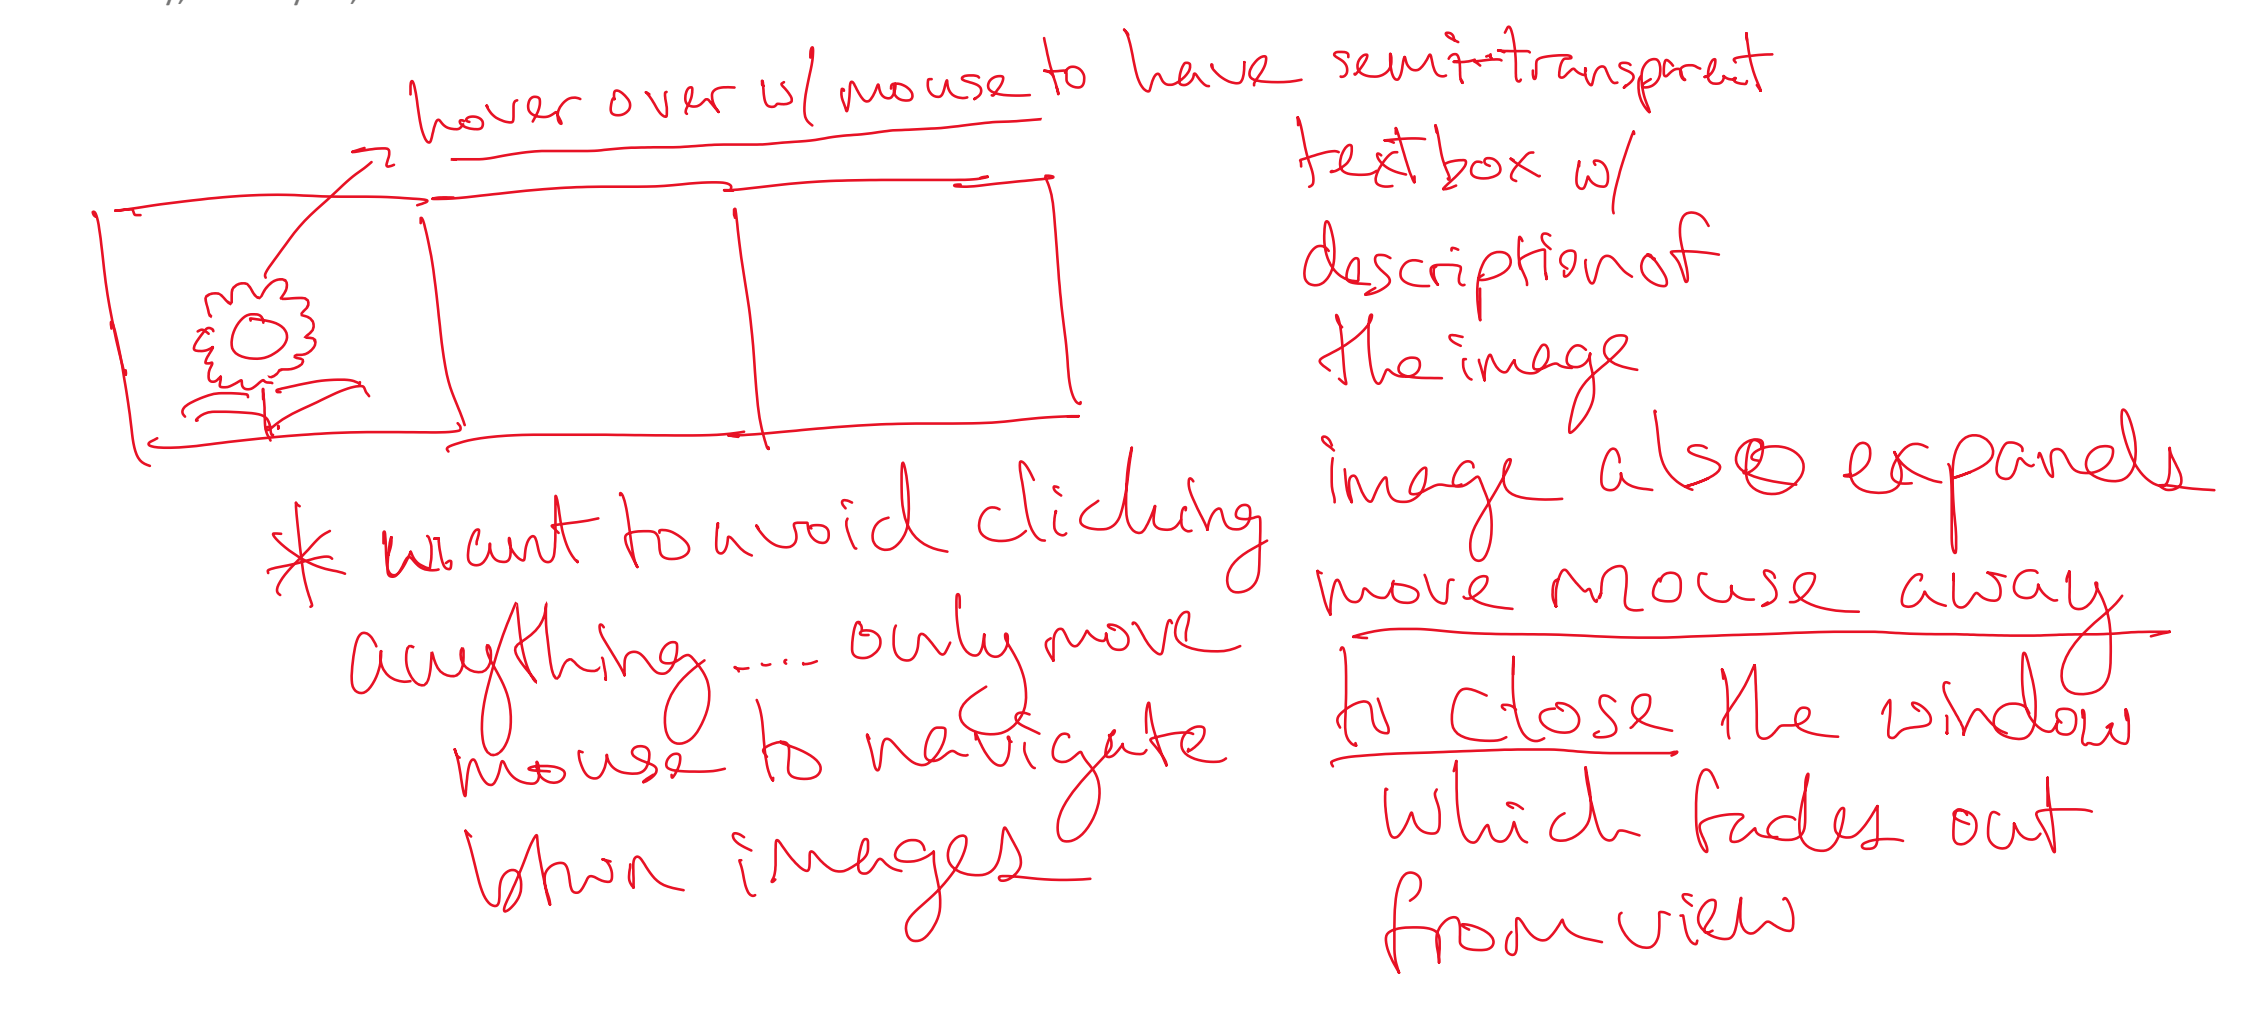 hover over w/ mouse to have semi-transparent
textbox w/
description of
the image
image also expands
move mouse away
to close the window
which fades out
from view
* want to avoid clicking
anything .... only move
mouse to navigate
btwn images